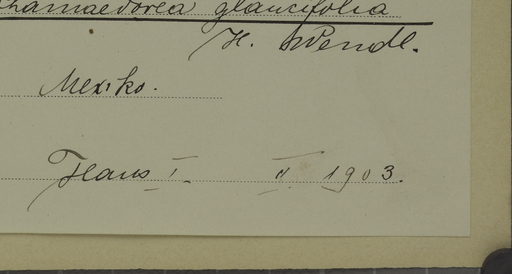 Chamaedorea glaucifolia
H. Wendl.
Mexiko.
Haus I. II. 1903.